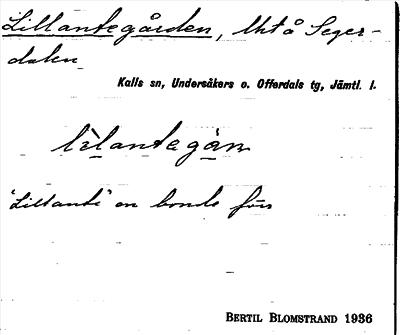 Lillantegården, lht å Seger-
dalen
Kalls sn, Undersåkers o. Offerdals tg, Jämtl. l.
lìlantegàṇ
"Lillante" en bonde förr
BERTIL BLOMSTRAND 1936